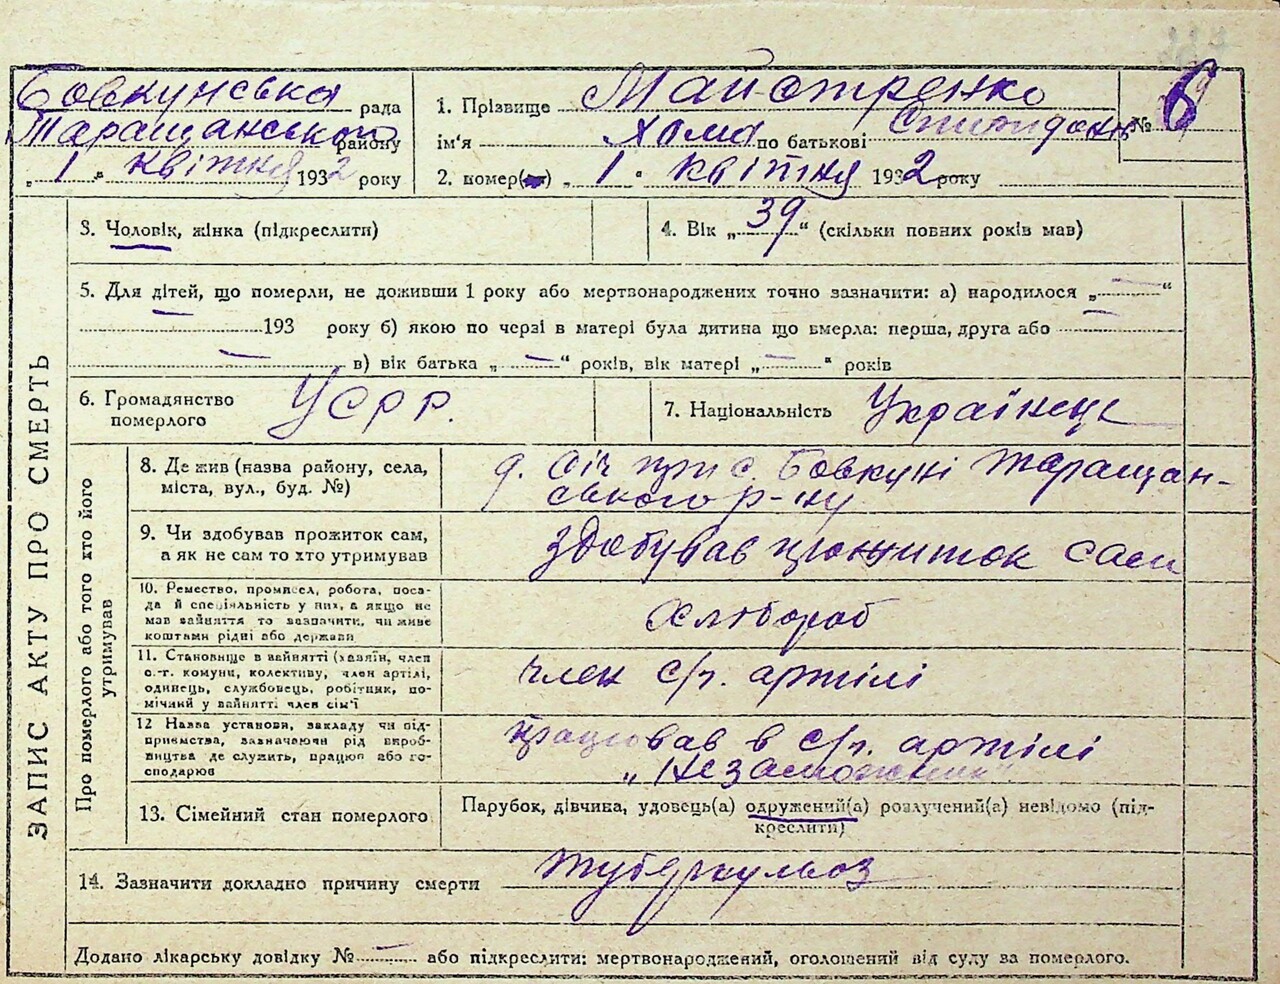 Бовкунська рада
Таращанського району
„ 1 " квітня 1932 року
1. Прізвище Майстренко
ім'я Хома по батькові Спиридонов
№ 6
2. помер(ла) „ 1 " квітня 1932 року
3. Чоловік, жінка (підкреслити)
4. Вік „ 39 " (скільки повних років мав)
5. Для дітей, що померли, не доживши 1 року або мертвонароджених точно зазначити: а) народилося „ — "
193 року б) якою по черзі в матері була дитина що вмерла: перша, друга або
— в) вік батька „ — " років, вік матері „ — " років
6. Громадянство
померлого
УСРР.
7. Національність Українець
ЗАПИС АКТУ ПРО СМЕРТЬ
Про померлого або того хто його
утримував
8. Де жив (назва району, села,
міста, вул., буд. №)
д. Січ при с. Бовкуні Таращан-
ського р-ну
9. Чи здобував прожиток сам,
а як не сам то хто утримував
здобував прожиток сам
10. Ремество, промисел, робота, поса-
да й спеціяльність у них, а якщо не
мав зайняття то зазначити, чи живе
коштами рідні або держави
Хлібороб
11. Становище в зайнятті (хазяїн, член
с.-г. комуни, колективу, член артілі,
одинець, службовець, робітник, по-
мічний у зайнятті член сім'ї
член с/г. артілі
12 Назва установи, закладу чи під-
приємства, зазначаючи рід вироб-
ництва де служить, працює або го-
сподарює
працював в с/г. артілі
„Незаможник"
13. Сімейний стан померлого
Парубок, дівчина, удовець(а) одружений(а) розлучений(а) невідомо (під-
креслити)
14. Зазначити докладно причину смерти туберкульоз
Додано лікарську довідку № — або підкреслити: мертвонароджений, оголошений від суду за померлого.